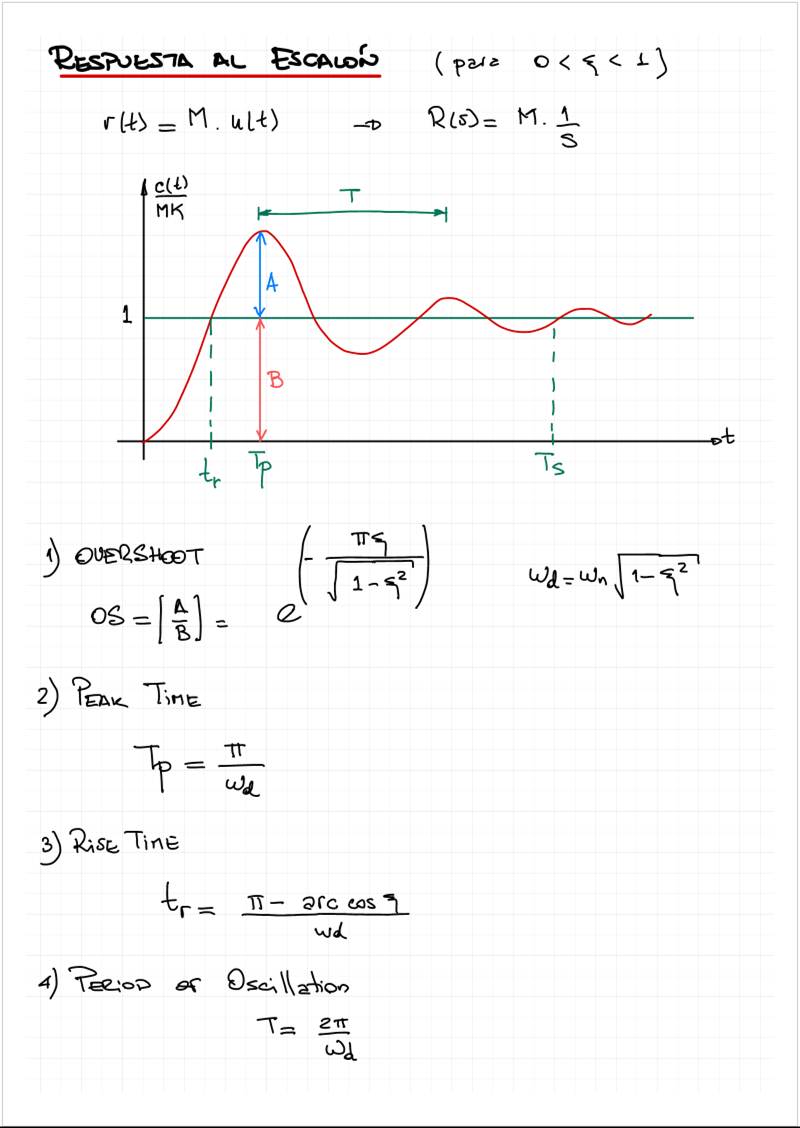 RESPUESTA AL ESCALÓN (para 0 < ξ < 1)
r(t) = M. u(t) → R(s) = M. 1/S
c(t)/MK
T
A
1
B
t
tr Tp Ts
1) OVERSHOOT
OS = [A/B] = e^(- πξ/√(1-ξ²)) ωd = ωn √(1-ξ²)
2) PEAK TIME
Tp = π/ωd
3) RISE TIME
tr = (π - arc cos ξ)/ωd
4) PERIOD OF Oscillation
T = 2π/ωd